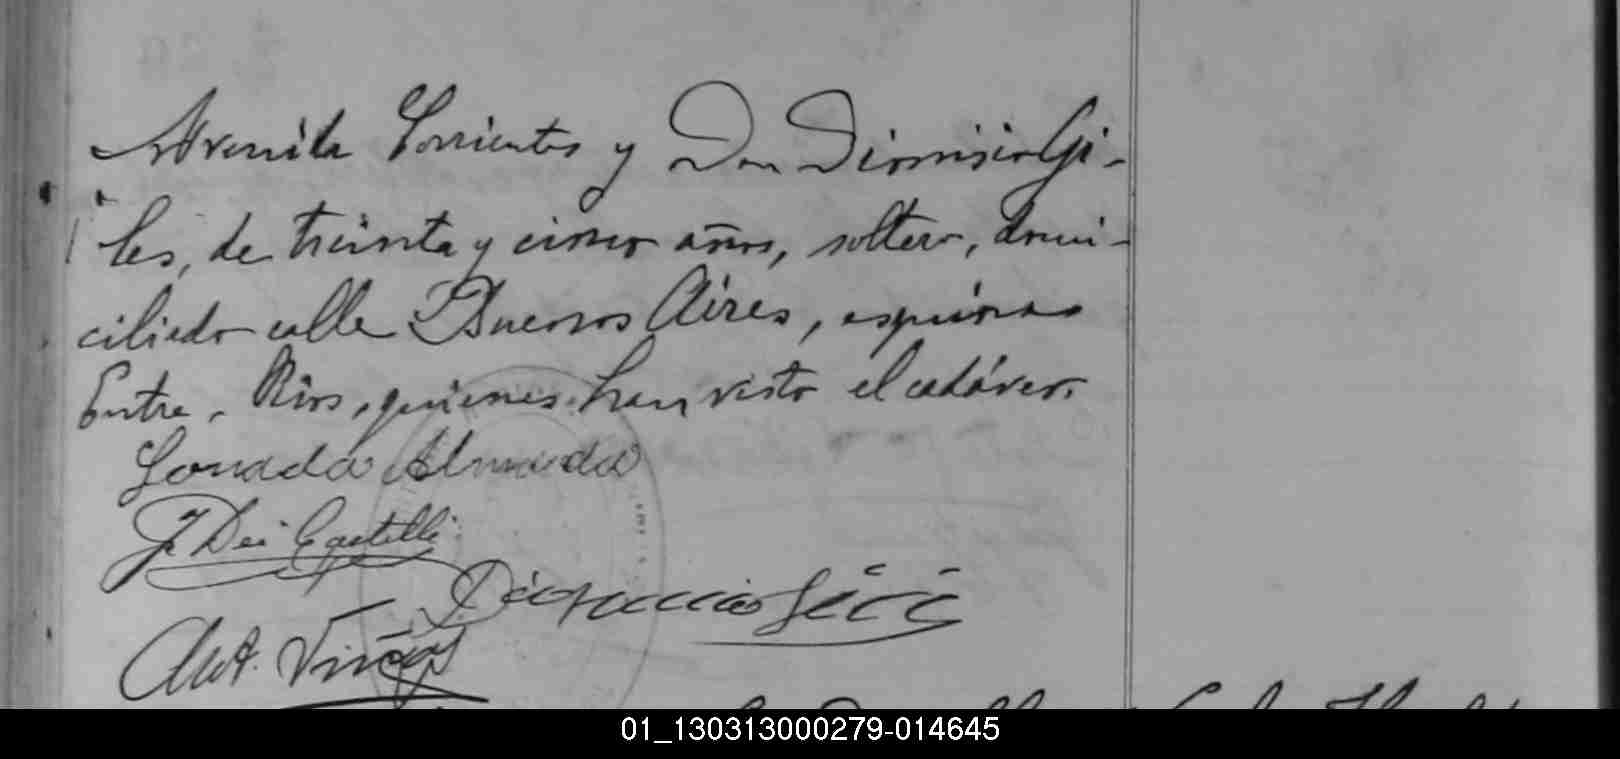 Avenida Corrientes y Don Dionisio Gi-
les, de treinta y cinco años, soltero, domi-
ciliado calle Buenos Aires, esquina
Entre Rios, quienes han visto el cadáver.
Almada
J. Dei Castelli
Dionicio
Ant. Viñas
01_130313000279-014645